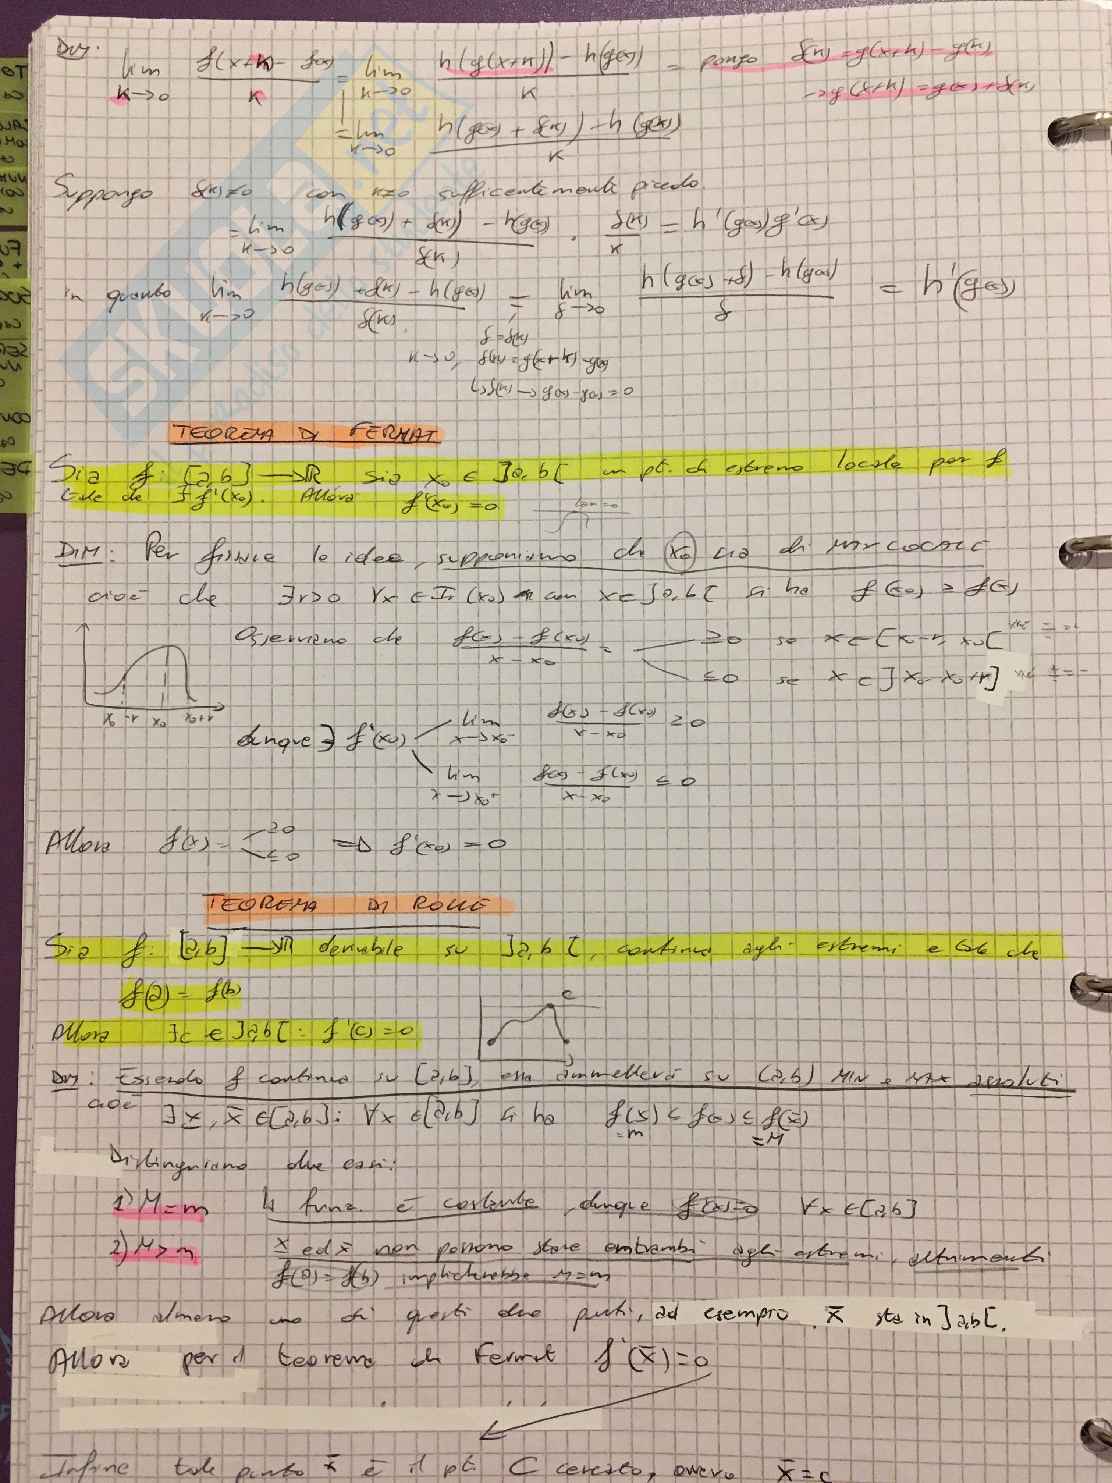 DIM:
lim k→0 f(x+k) - f(x) / k = lim k→0 h(g(x+k)) - h(g(x)) / k = pongo δ(k) = g(x+k) - g(x)
→ g(x+k) = g(x) + δ(k)
= lim k→0 h(g(x) + δ(k)) - h(g(x)) / k
Suppongo δ(k)≠0 con k≠0 sufficientemente piccolo.
= lim k→0 h(g(x) + δ(k)) - h(g(x)) / δ(k) · δ(k) / k = h'(g(x)) g'(x)
in quanto lim k→0 h(g(x) + δ(k)) - h(g(x)) / δ(k) = lim δ→0 h(g(x) + δ) - h(g(x)) / δ = h'(g(x))
δ = δ(k)
k→0, δ(k) = g(x+k) - g(x)
↳ δ(k) → g(x) - g(x) = 0
TEOREMA DI FERMAT
Sia f: [a,b] → ℝ Sia x₀ ∈ ]a,b[ un pt. di estremo locale per f
tale che ∃ f'(x₀). Allora f'(x₀) = 0
DIM: Per fissare le idee, supponiamo che x₀ sia di MAX LOCALE
cioè che ∃r>0 ∀x ∈ Ir(x₀) con x ∈ ]a,b[ si ha f(x₀) ≥ f(x)
Osserviamo che f(x) - f(x₀) / x - x₀ = ≥0 se x ∈ [x₀-r, x₀[
≤0 se x ∈ ]x₀, x₀+r]
x₀-r x₀ x₀+r
dunque ∃ f'(x₀) lim x→x₀⁻ f(x) - f(x₀) / x - x₀ ≥ 0
lim x→x₀⁺ f(x) - f(x₀) / x - x₀ ≤ 0
Allora f'(x₀) = ≥0 ≤0 ⇒ f'(x₀) = 0
TEOREMA DI ROLLE
Sia f: [a,b] → ℝ derivabile su ]a,b[, continua agli estremi e tale che
f(a) = f(b)
c
Allora ∃c ∈ ]a,b[ : f'(c) = 0
DIM: Essendo f continua su [a,b], essa ammetterà su [a,b] MIN e MAX assoluti
cioè ∃ x̲, x̄ ∈ [a,b] : ∀x ∈ [a,b] si ha f(x̲) ≤ f(x) ≤ f(x̄)
=m =M
Distinguiamo due casi:
1) M=m la funz. è costante, dunque f'(x)=0 ∀x ∈ [a,b]
2) M>m x̲ ed x̄ non possono stare entrambi agli estremi, altrimenti
f(a) = f(b) implicherebbe M=m
Allora almeno uno di questi due punti, ad esempio x̄ sta in ]a,b[.
Allora per il teorema di Fermat f'(x̄) = 0
Infine tale punto x̄ è il pt C cercato, ovvero x̄=c
SKUOLA.net